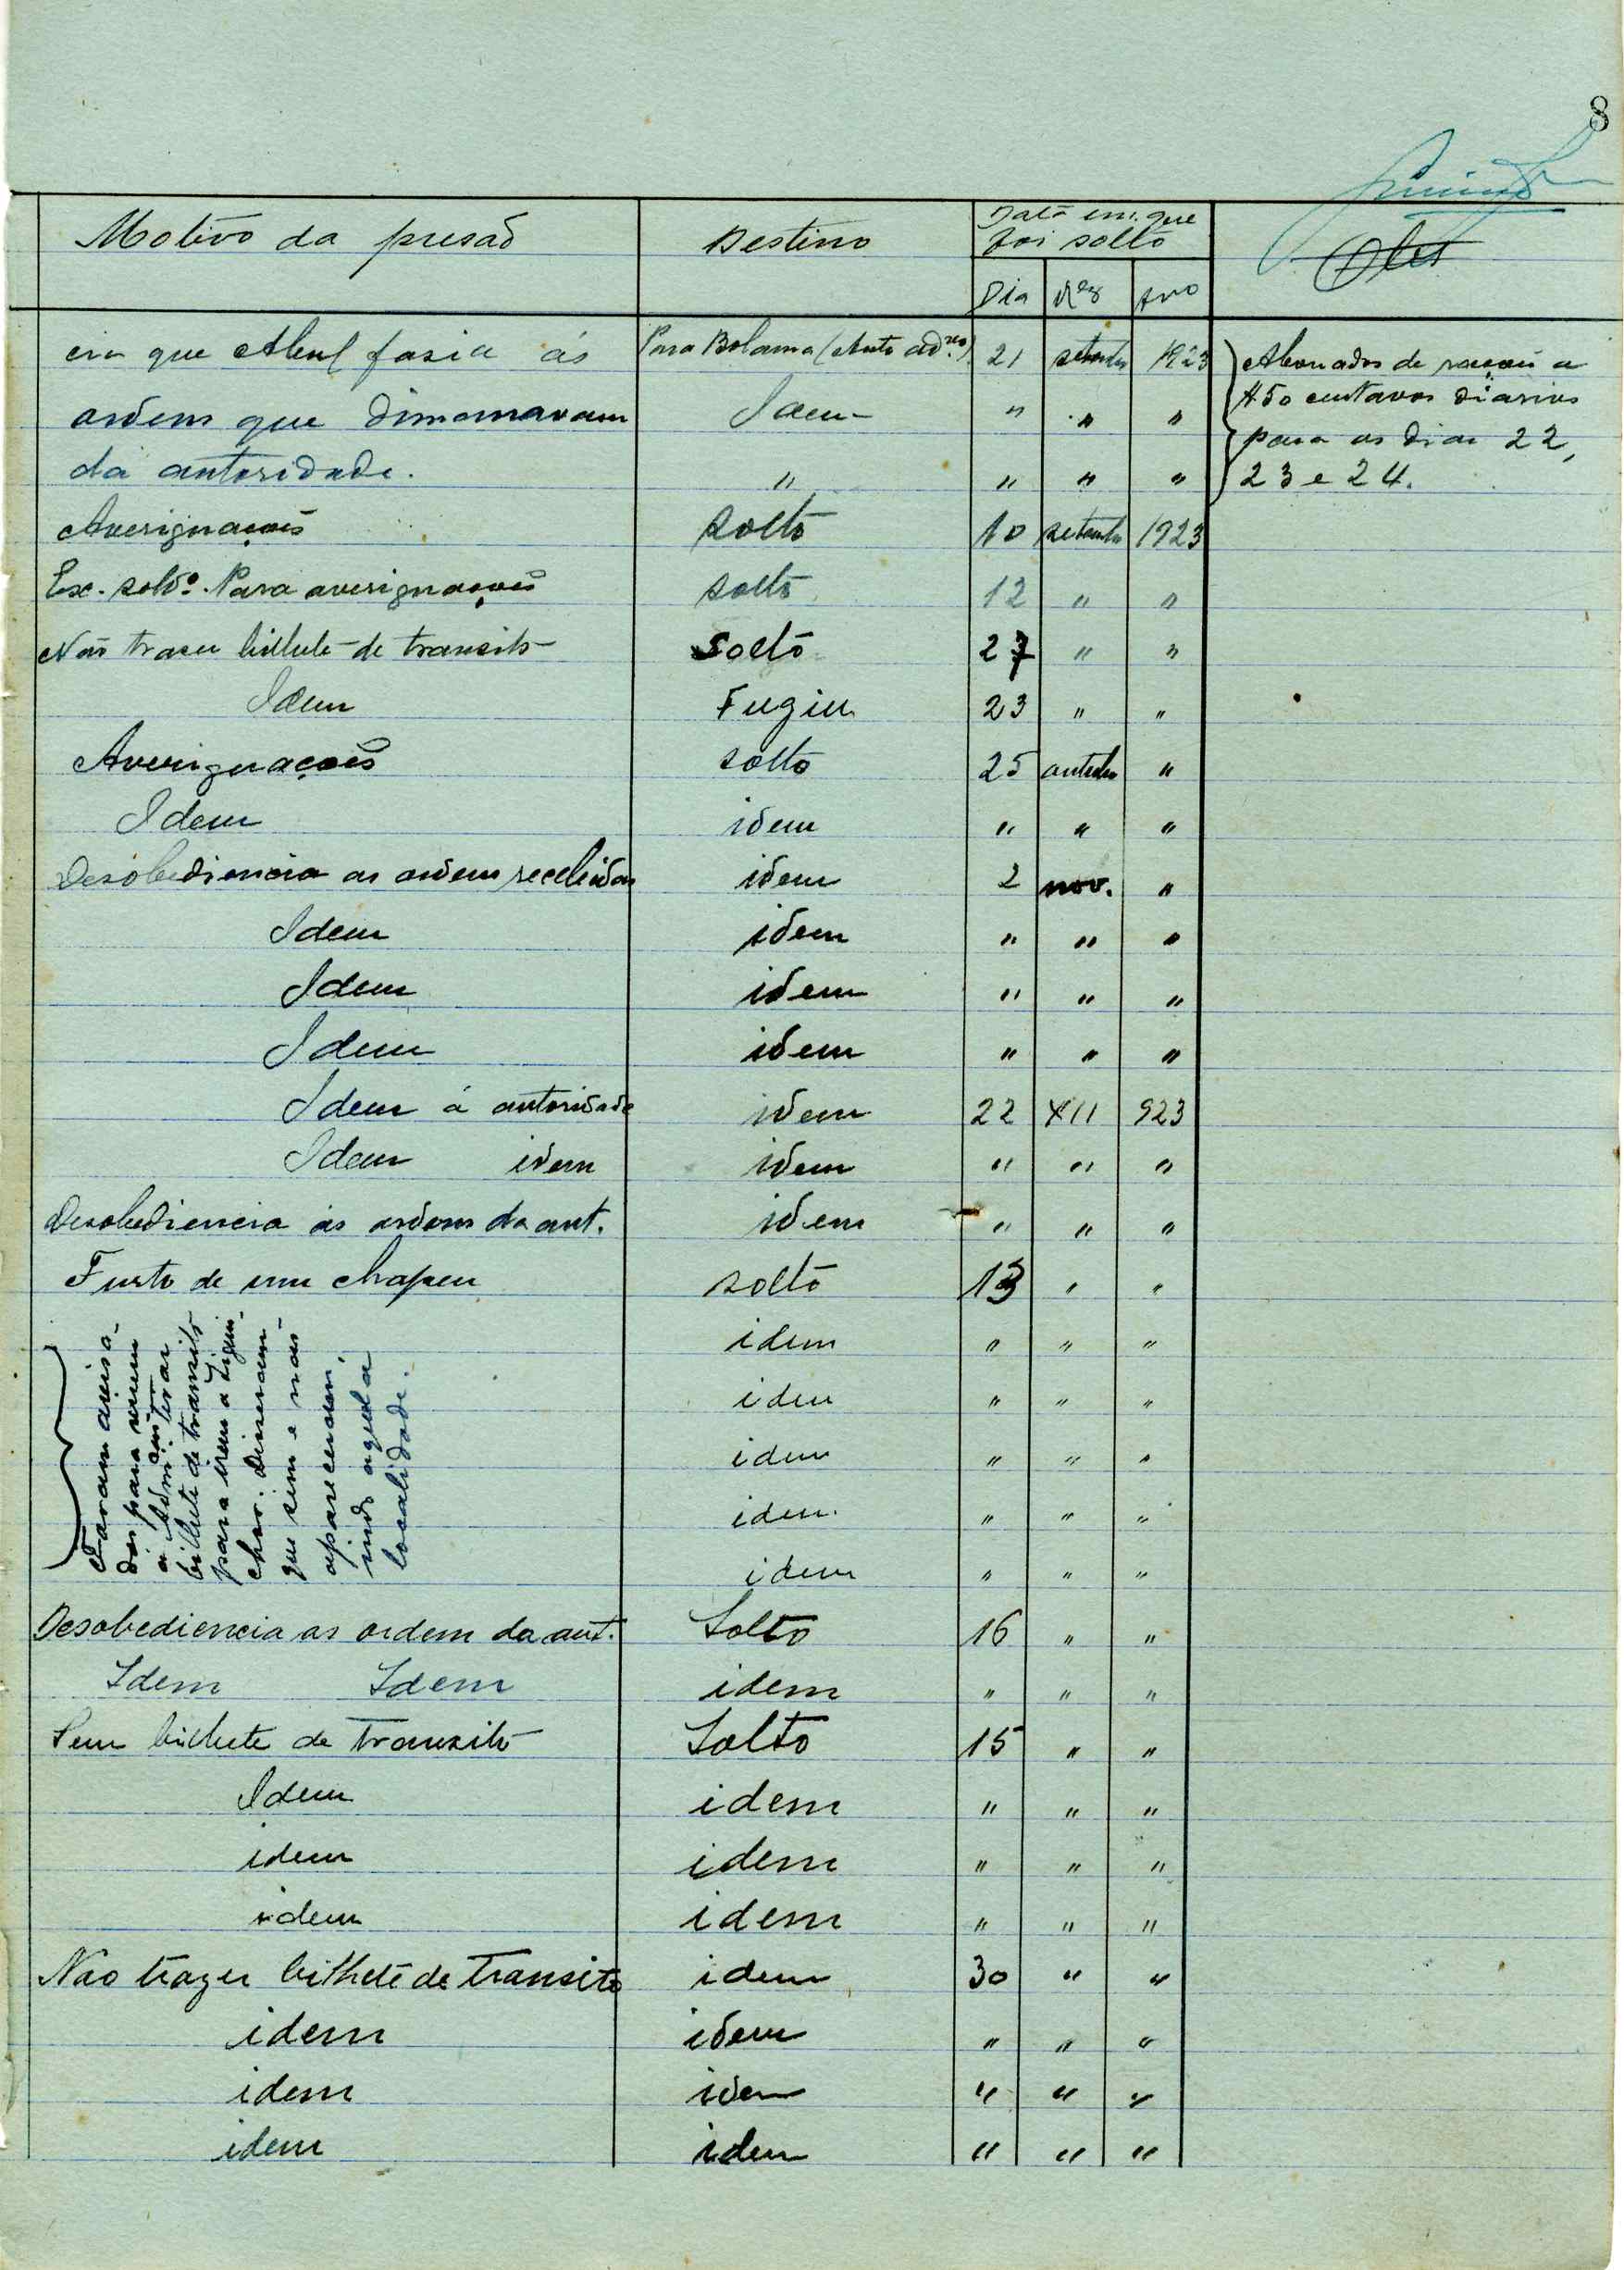 8
Motivo da presão Destino Data em que foi solto Obs
Dia Mez Ano
cia que Abul fasia ás Para Bolama (Auto adm.vo) 21 setembro 1923 Abonados de rações a
ordens que dimanavam Idem " " " $50 centavos diarios
da autoridade. " " " " para os dias 22,
23 e 24.
Averiguações solto 10 setembro 1923
Ex. soldº. Para averiguações solto 12 " "
Não trazer bilhete de transito solto 27 " "
Idem Fugiu 23 " "
Averiguações solto 25 outubro "
Idem idem " " "
Desobediencia as ordem recebidas idem 2 nov. "
Idem idem " " "
Idem idem " " "
Idem idem " " "
Idem á autoridade idem 22 XII 923
Idem idem idem " " "
Desobediencia ás ordens da aut. idem " " "
Furto de um chapeu solto 13 " "
Foram avisa-
dos para virem
a Admi. tirar
bilhete de transito
para irem a
que sim e não
apareceram,
indo aquela
localidade.
idem " " "
idem " " "
idem " " "
idem. " " "
idem " " "
Desobediencia as ordem da aut. Solto 16 " "
Idem Idem idem " " "
Sem bilhete de transito Solto 15 " "
Idem idem " " "
idem idem " " "
idem idem " " "
Não trazer bilhete de transito idem 30 " "
idem idem " " "
idem idem " " "
idem idem " " "